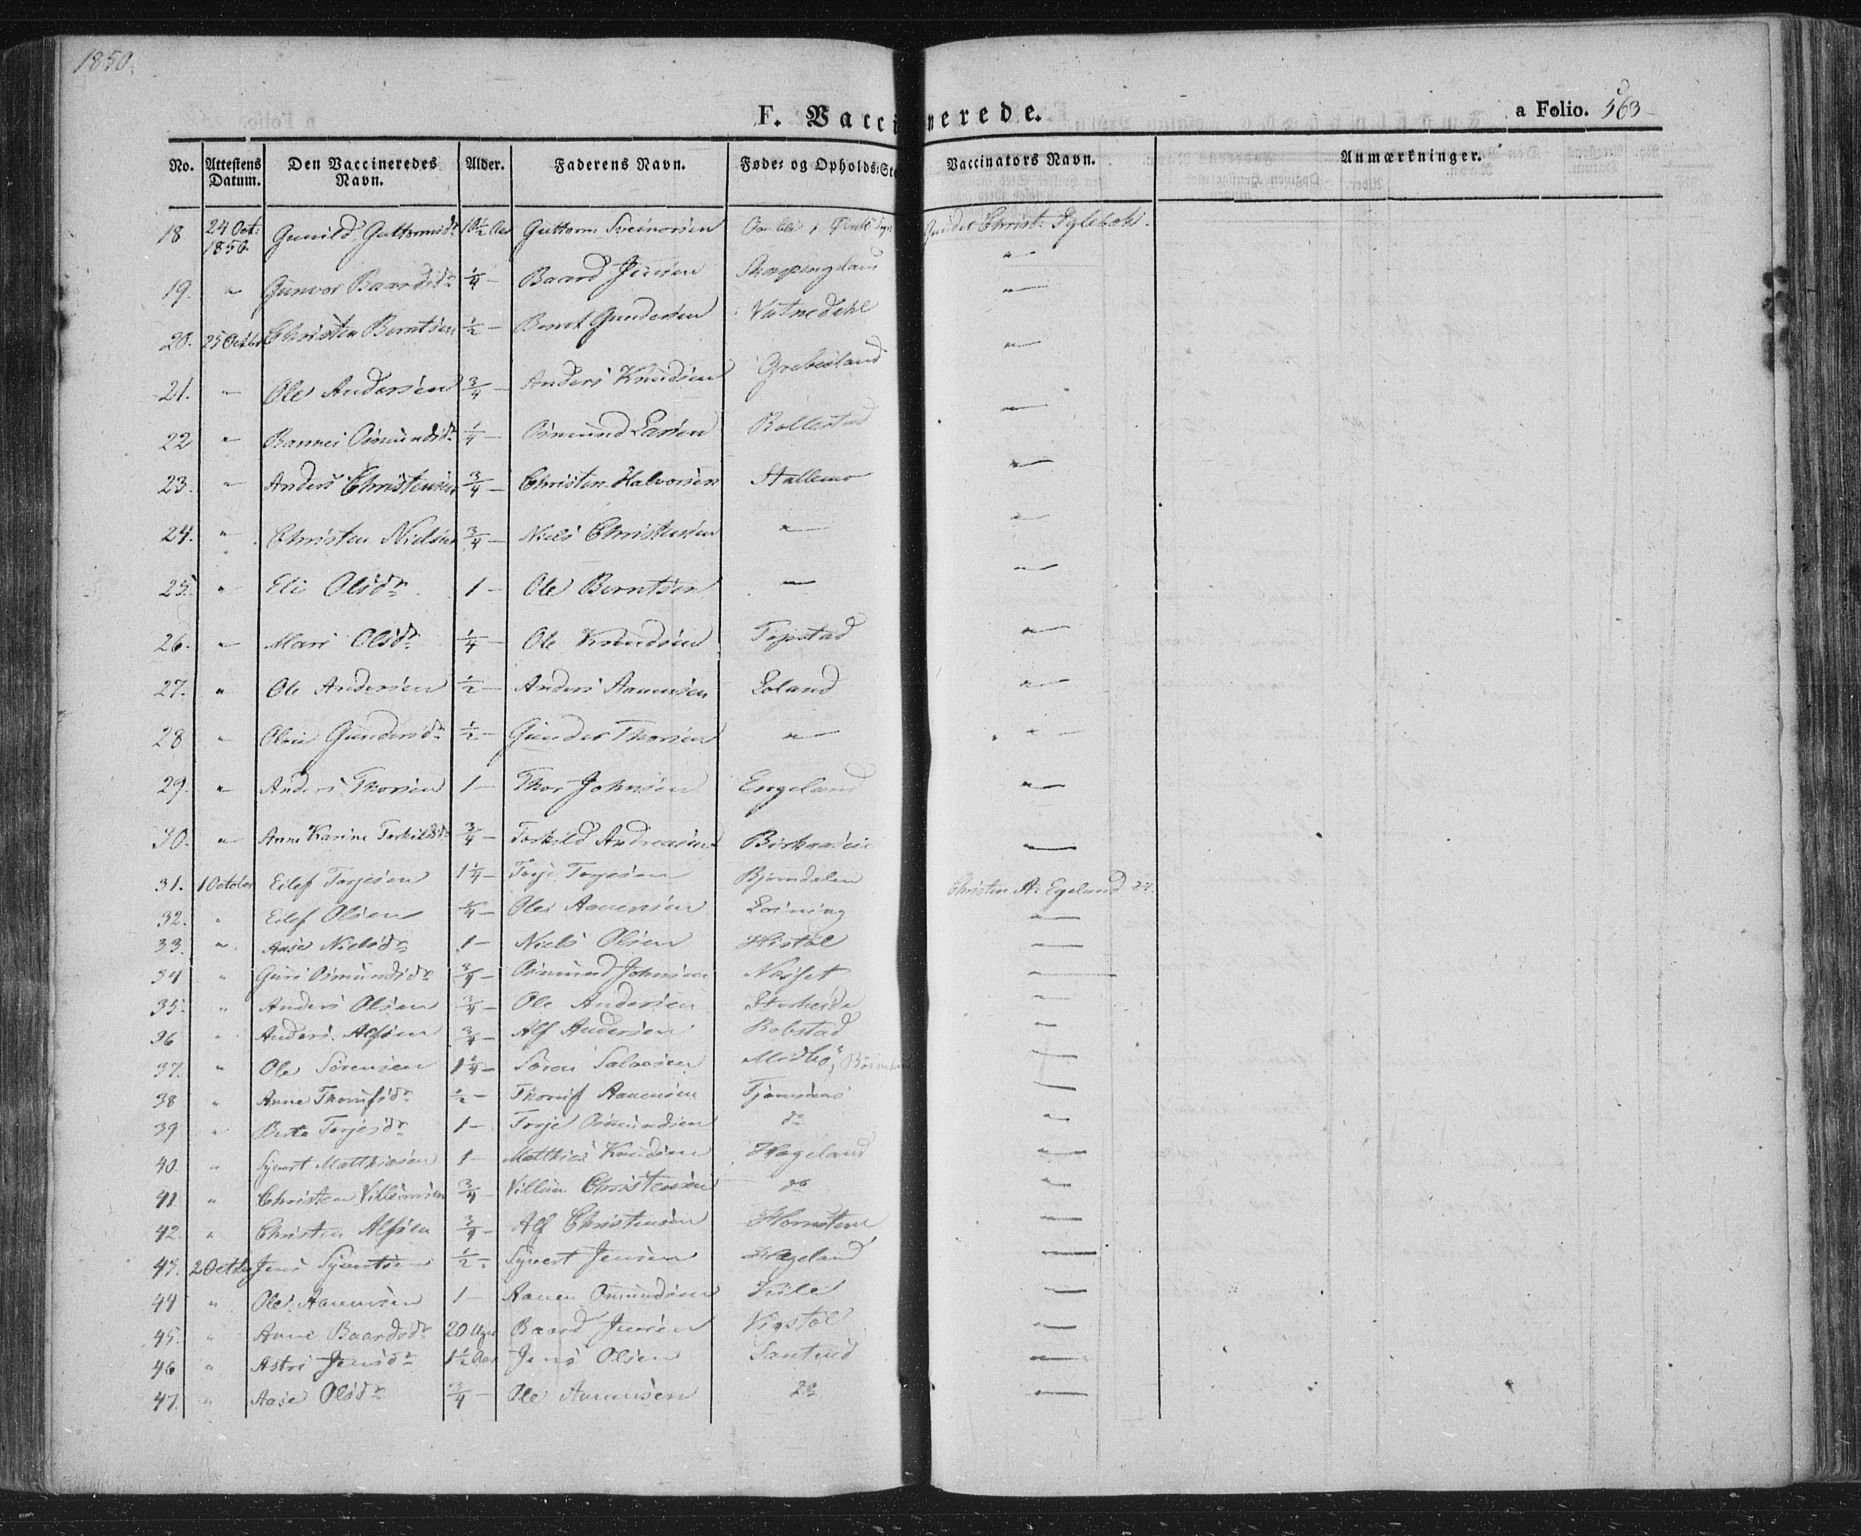 1850.
F. Vaccinerede.
a Folio. 563
No. Attestens Datum. Den Vaccineredes Navn. Alder. Faderens Navn. Føde- og Opholds-Ste Vaccinators Navn. Anmærkninger.
18 24 Oct: 1850. Gunild Guttormsdr 10½ Aar Guttorm Sveinorsen Gunder Christ:
19. " Gunvor Baardsdr ¼ — Baard Jensen "
20. 25 Octbr Christen Berntsen ½ — Bernt Gundersen Vatnedahl "
21. " Ole Andersen ¾ — Anders Knudsen Grebesland "
22 " Osmundsdr ¼ — Osmund Larsen Bollestad "
23. " Anders Christensen ¾ — Christen Halvorsen Stallemo "
24. " Christen Nielsen ¾ — Niels Christensen " "
25. " Eli Olsdr 1 — Ole Berntsen — "
26. " Mari Olsdr ¼ — Ole Knudsen "
27. " Ole Andersen ½ — Anders Aanensen Loland "
28 " Gundersdr ½ — Gunder Thorsen " "
29. " Anders Thorsen 1 — Thor Johnsen Engeland "
30. " Anne Karine Torkildsdr ¾ — Torkild Andreasen "
31. 1 October Eilef Torjesen 1¼ — Torje Torjesen Bjorndalen Christen A: Egeland
32. " Eilef Olsen — Ole Aanensen "
33. " Aase Nielsdr 1 — Niels Olsen Histøl "
34 " Guri Osmundsdr ¾ — Osmund Johnsen "
35. " Anders Olsen ¾ — Ole Andersen "
36 " Anders Alfsen ¾ — Alf Andersen Robstad "
37. " Ole Sørensen 1¼ — Søren Salvesen "
38 " Anne ½ — Aanensen "
39 " Berte Torjesdr 1 — Torje Osmundsen do "
40. " Syvert Matthiasen 1 — Matthias Knudsen Hageland "
41 " Christen Villumsen ¾ — Villum Christensen do "
42. " Christen Alfsen ¾ — Alf Christensen "
43. 2 Octbr Jens Syvertsen ½ — Syvert Jensen Hageland "
44 " Ole Aanensen 1 — Aanen Osmundsen "
45. " Anne Baardsdr 20 Uger Baard Jensen Vigstøl "
46 " Astri Jensdr 1½ Aar Jens Olsen "
47. " Aase Olsdr ¾ — Ole Aanensen do "